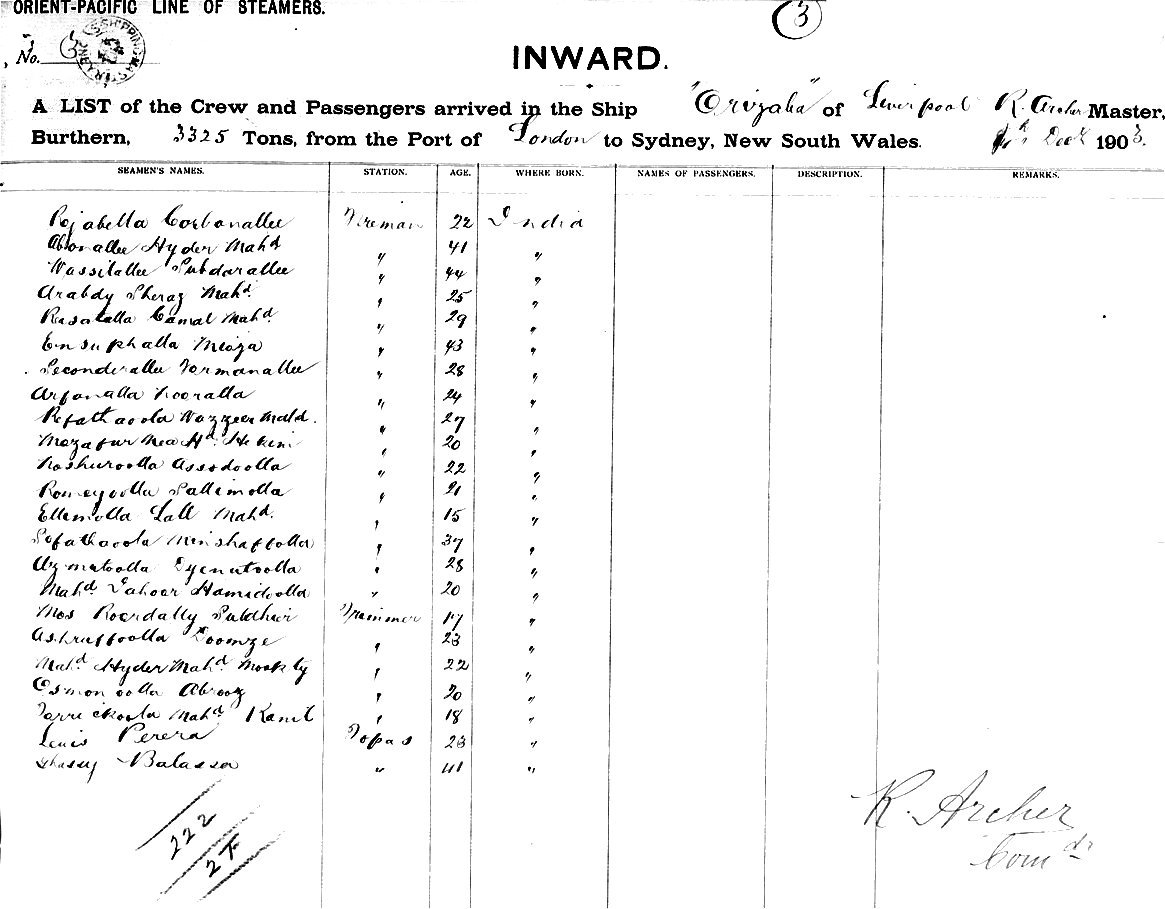 ORIENT-PACIFIC LINE OF STEAMERS.
3
No. 3
INWARD.
A LIST of the Crew and Passengers arrived in the Ship "Orizaba" of Liverpool R. Archer Master,
Burthern, 3325 Tons, from the Port of London to Sydney, New South Wales. Decr 1903.
SEAMEN'S NAMES. STATION. AGE. WHERE BORN. NAMES OF PASSENGERS. DESCRIPTION. REMARKS.
Rojabella Corbanallee Fireman 22 India
Abonallee Hyder Mahd " 41 "
Wassilallee Subdarallee " 44 "
Arabdy Sheraz Mahd " 25 "
Rasalalla Camal Mahd " 29 "
Ensuphalla Meaza " 43 "
Seconderallee Formanallee " 28 "
Arfanalla Nooralla " 24 "
Refathoola Wazzeer Mahd. " 27 "
Mozafur Mea Hd. Hekim " 20 "
Noshuroolla Assodoolla " 22 "
Romeyoolla Sallimolla " 21 "
Ellimolla Lall Mahd. " 15 "
Sofathoola Minshaffolla " 37 "
Azmatoolla Eyenutoolla " 28 "
Mahd Zahoor Hamidoolla " 20 "
Mos Roerdally Suldhir Trimmer 17 "
Ashruffoolla Doomze " 23 "
Mahd Hyder Mahd Mookty " 22 "
Osmonoolla Abrooz " 20 "
Torrickoola Mahd Kamil " 18 "
Lewis Perera Topas 23 "
Balassa " 41 "
222
R. Archer
Comdr